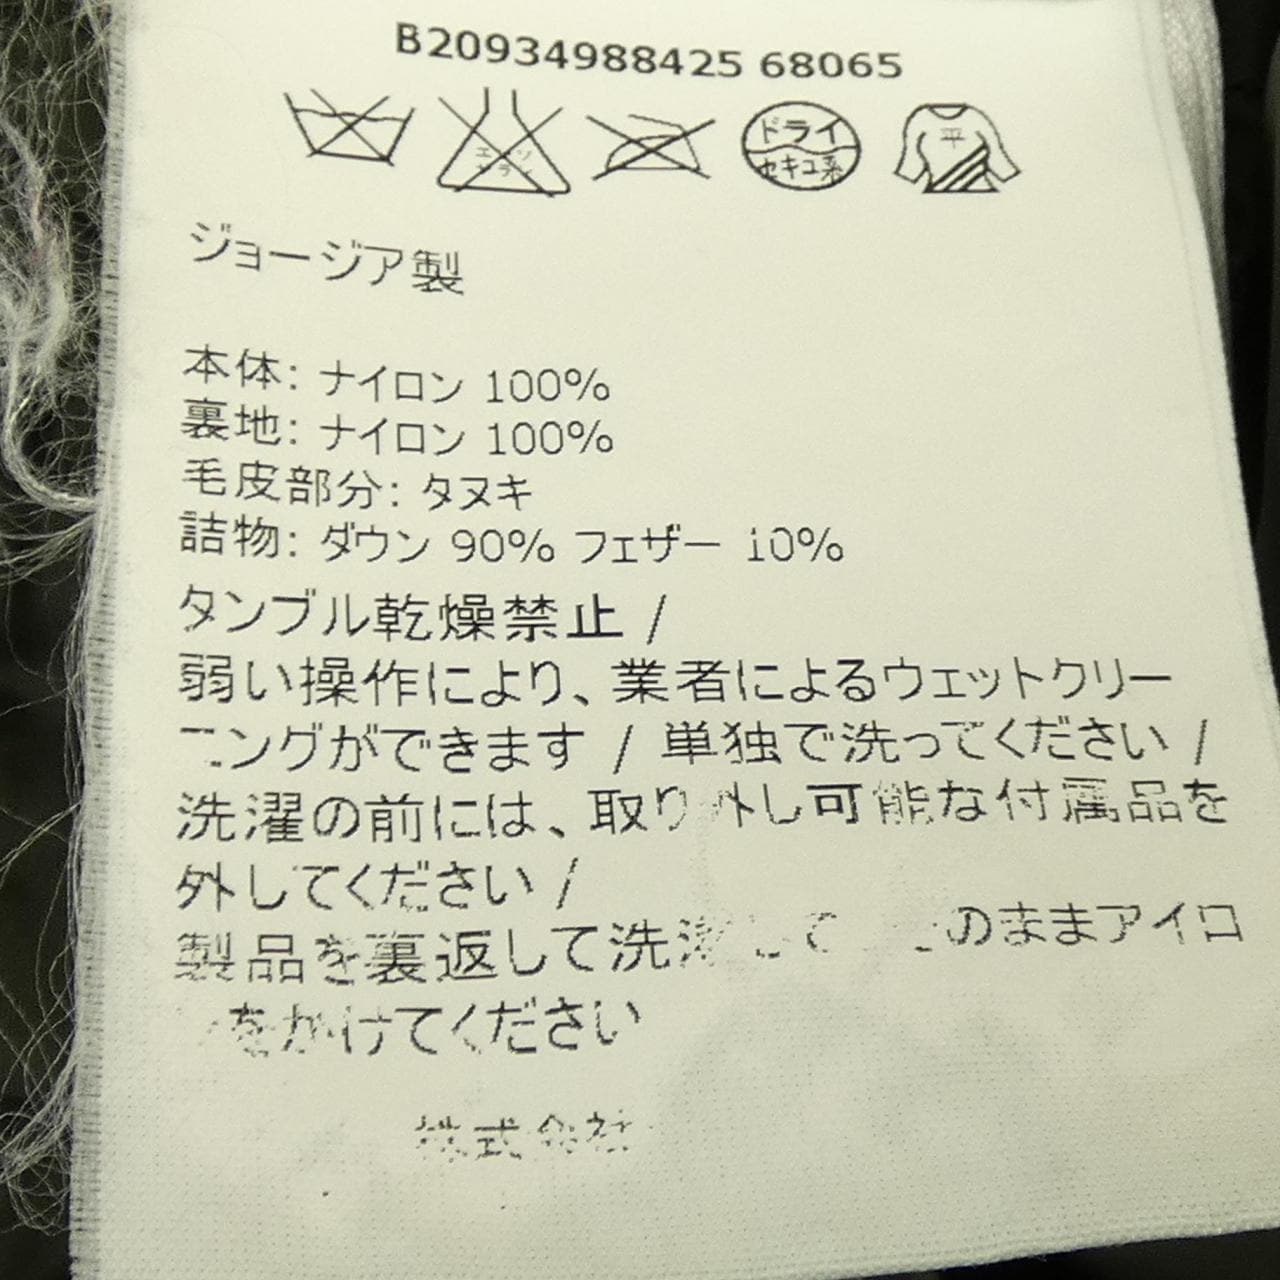 B20934988425 68065
エンソ
ラ
ドライ
セキユ系
平
ジョージア製
本体: ナイロン 100%
裏地: ナイロン 100%
毛皮部分: タヌキ
詰物: ダウン 90% フェザー 10%
タンブル乾燥禁止 /
弱い操作により、業者によるウェットクリー
ニングができます / 単独で洗ってください /
洗濯の前には、取り外し可能な付属品を
外してください /
製品を裏返して洗濯して のままアイロ
をかけてください
株式会社